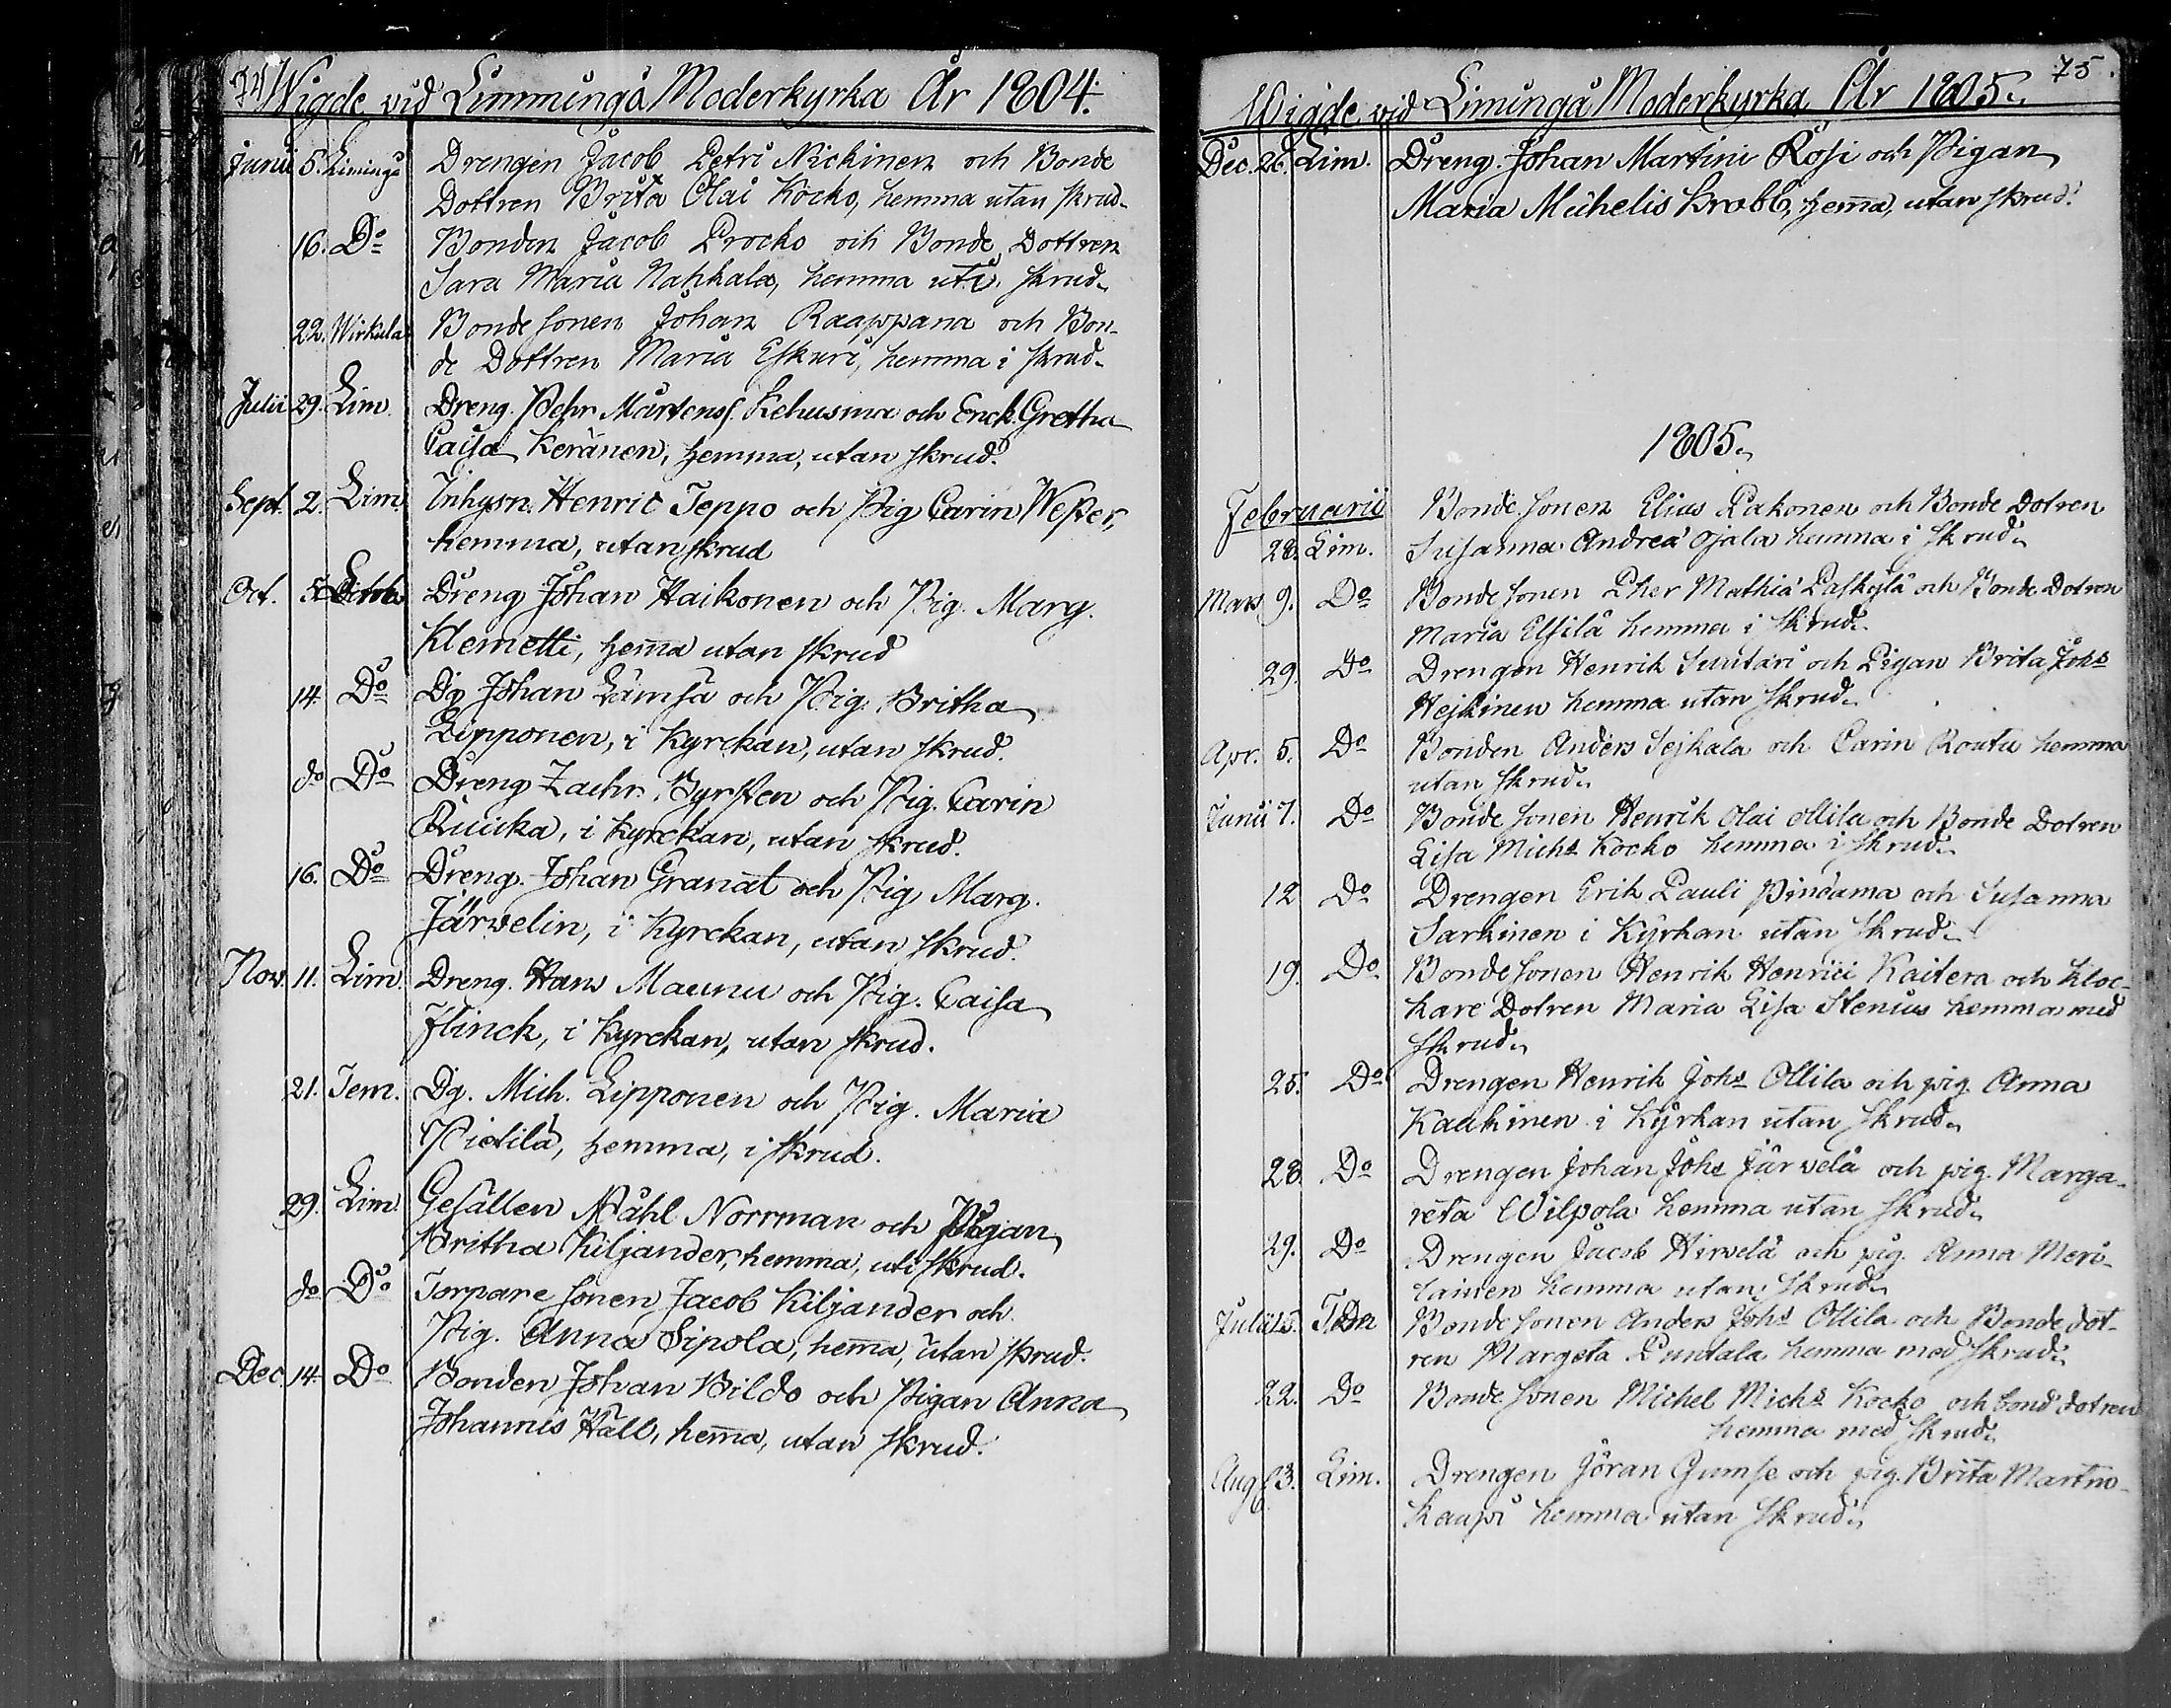 74
Wigde vid Limmingå Moderkyrka År 1804.
Junii 5. Limingo Drengen Jacob Petri Nickinen och Bonde
Dottren Brita Olai Kocko, hemma utan skrud.
16. Do Bonden Jacob Procko och Bonde Dottren
Sara Maria Nahkala, hemma uti skrud.
22. Wirkula Bonde Sonen Johan Raappana och Bon-
de Dottren Maria Eskuri, hemma i skrud.
Julii 29. Lim. Dreng. Pehr Mårtenss. Kehusmaa och Enck. Gretha
Caisa Keränen, hemma, utan skrud.
Sept. 2. Lim. Inhysn. Henric Teppo och Pig Carin Wester,
hemma, utan skrud
Oct. 5. Dreng Johan Haikonen och Pig. Marg.
Klemetti, hem̅a utan skrud
14. Do Dg Johan Lämsä och Pig. Britha
Lipponen, i Kyrckan, utan skrud.
do Do Dreng Zachr. Byrsten och Pig. Carin
Ruicka, i Kyrckan, utan skrud.
16. Do Dreng. Johan Granat och Pig Marg.
Järwelin, i Kyrckan, utan skrud.
Nov. 11. Lim Dreng. Hans Maunu och Pig. Caisa
Flinck, i Kyrckan, utan skrud.
21. Tem. Dg. Mich. Lipponen och Pig. Maria
Pietilä, hemma, i skrud.
29. Lim Gesällen Påhl Norrman och Pigan
Britha Kiljander, hemma, uti skrud.
do Do Torpare Sonen Jacob Kiljander och
Pig. Anna Sipola, hem̅a, utan skrud.
Dec. 14. Do Bonden Johan Bildo och Pigan Anna
Johannis Häll, hem̅a, utan skrud.
75.
Wigde vid Limingå Moderkyrka År 1805.
Dec. 26. Lim. Dreng. Johan Martini Rosi och Pigan
Maria Michelis Krabb, hem̅a, utan skrud.
1805.
Februarii Bonde Sonen Elias Lakonen och Bonde Dotren
28. Lim. Susanna Andreæ Ojala hemma i skrud.
Mars 9. Do Bonde Sonen Pher Mathiæ och Bonde Dotren
Maria Elsilä hemma i skrud.
29. Do Drengen Henrik Suutari och Pigan Brita Johs
Hejkinen hemma utan skrud.
Apr. 5. Do Bonden Anders Sejkala och Carin Routu hemma
utan skrud.
Junii 7. Do Bonde Sonen Henrik Olai Ollila och Bonde Dotren
Lisa Michs Kocko hemma i skrud.
12 Do Drengen Erik Pauli Pindama och Susanna
Sarkinen i Kyrkan utan skrud.
19. Do Bonde Sonen Henrik Henrici Kaitera och Kloc-
kare Dotren Maria Lisa Stenius hemma med
skrud.
25. Do Drengen Henrik Johs Ollila och pig Anna
Kaukinen i Kyrkan utan skrud.
28. Do Drengen Johan Johs Järvelä och pig. Marga-
reta Wilpola hemma utan skrud.
29. Do Drengen Jacob Hirvelä och pig. Anna Meri-
lainen hemma utan skrud.
Julii 15. Bonde Sonen Anders Johs Ollila och Bonde dot-
ren Margeta Puntala hemma med skrud.
22. Do Bonde Sonen Michel Michs Kocko och bond dotren
hemma med skrud.
Aug 3. Lim. Drengen Jöran Gumse och pig. Brita Martin-
kaupi hemma utan skrud.